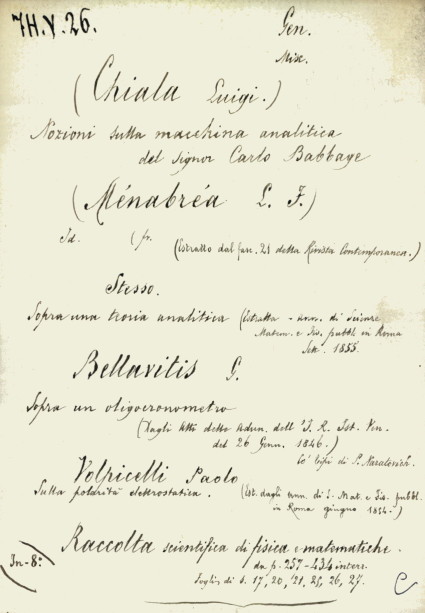 7H.V.26.
Gen.
Misc.
(Chiala Luigi.)
Nozioni sulla macchina analitica
del signor Carlo Babbage
(Ménabréa L. F.)
Id. (fr.
(Estratto dal fasc. 21 della Rivista Contemporanea.)
Stesso.
Sopra una teoria analitica (Estratta - di Scienze
Matem. e Fis. pubbl. in Roma
1855.
Bellavitis G.
Sopra un oligocronometro
(Dagli Atti delle Adun. dell' I. R. Ist. Ven.
del 26 Genn. 1846.)
Co' tipi di P. Naratovich.
Volpicelli Paolo
Sulla polarità elettrostatica. (Est. dagli ann. di S. Mat. e Fis. pubbl.
in Roma giugno 1854.)
In-8°
Raccolta scientifica di fisica e matematiche.
da p. 257-434 intere.
Foglio di 17, 20, 21, 25, 26, 27.
C